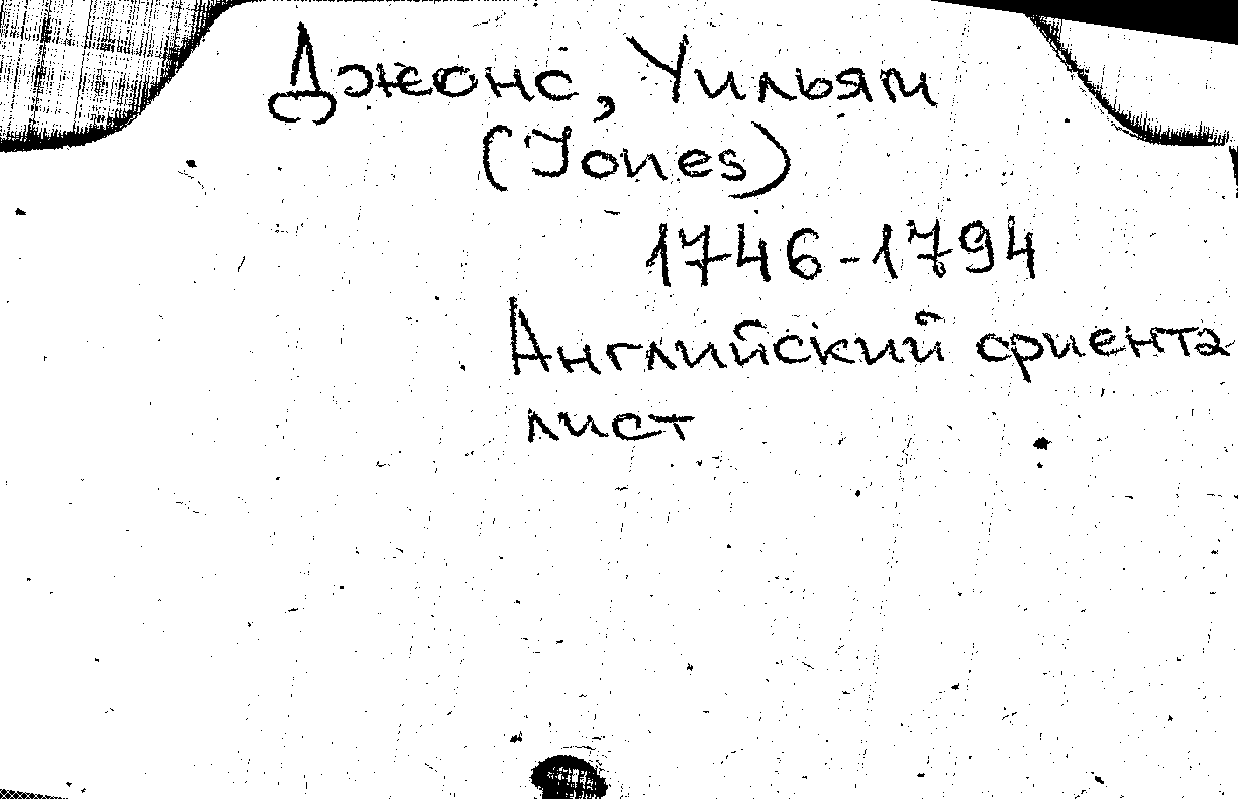 Джонс, Уильям
(Jones)
1746-1794
Английский ориента
лист